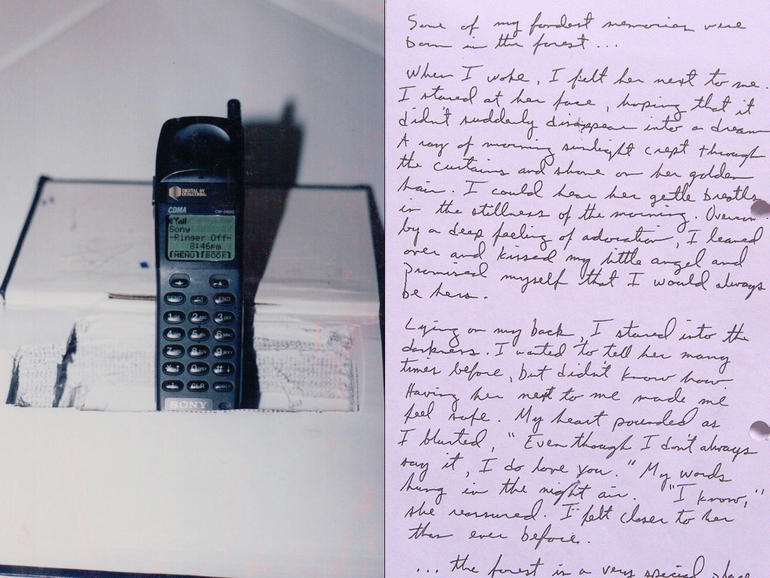 DIGITAL BY
QUALCOMM
CDMA
Sony
-Ringer Off-
8:46pm
MENU BOOK
END
1
2
3
4
5
6
7
8
9
0
CLR
SONY
Some of my fondest memories were
born in the forest...
When I woke, I felt her next to me.
I stared at her face, hoping that it
didn't suddenly disappear into a dream.
A ray of morning sunlight crept through
the curtains and shone on her golden
hair. I could hear her gentle breaths
in the stillness of the morning. Overrun
by a deep feeling of adoration, I leaned
over and kissed my little angel and
promised myself that I would always
be hers.
Lying on my back, I stared into the
darkness. I wanted to tell her many
times before, but didn't know how.
Having her next to me made me
feel safe. My heart pounded as
I blurted, "Even though I don't always
say it, I do love you." My words
hung in the night air. "I know,"
she reassured. I felt closer to her
than ever before.
... the forest is a very special place